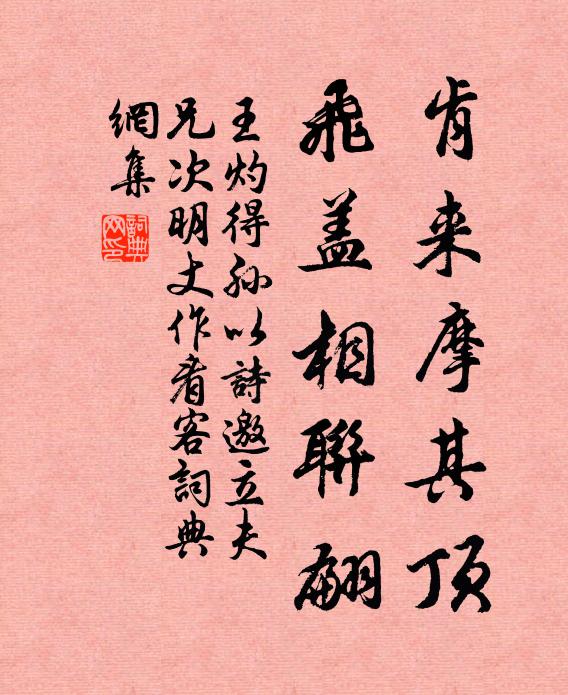 肯来摩其顶
飛盖相聯翩
王灼得孙以詩邀立夫
兄次明丈作看客詞典
網集
詞典
网印